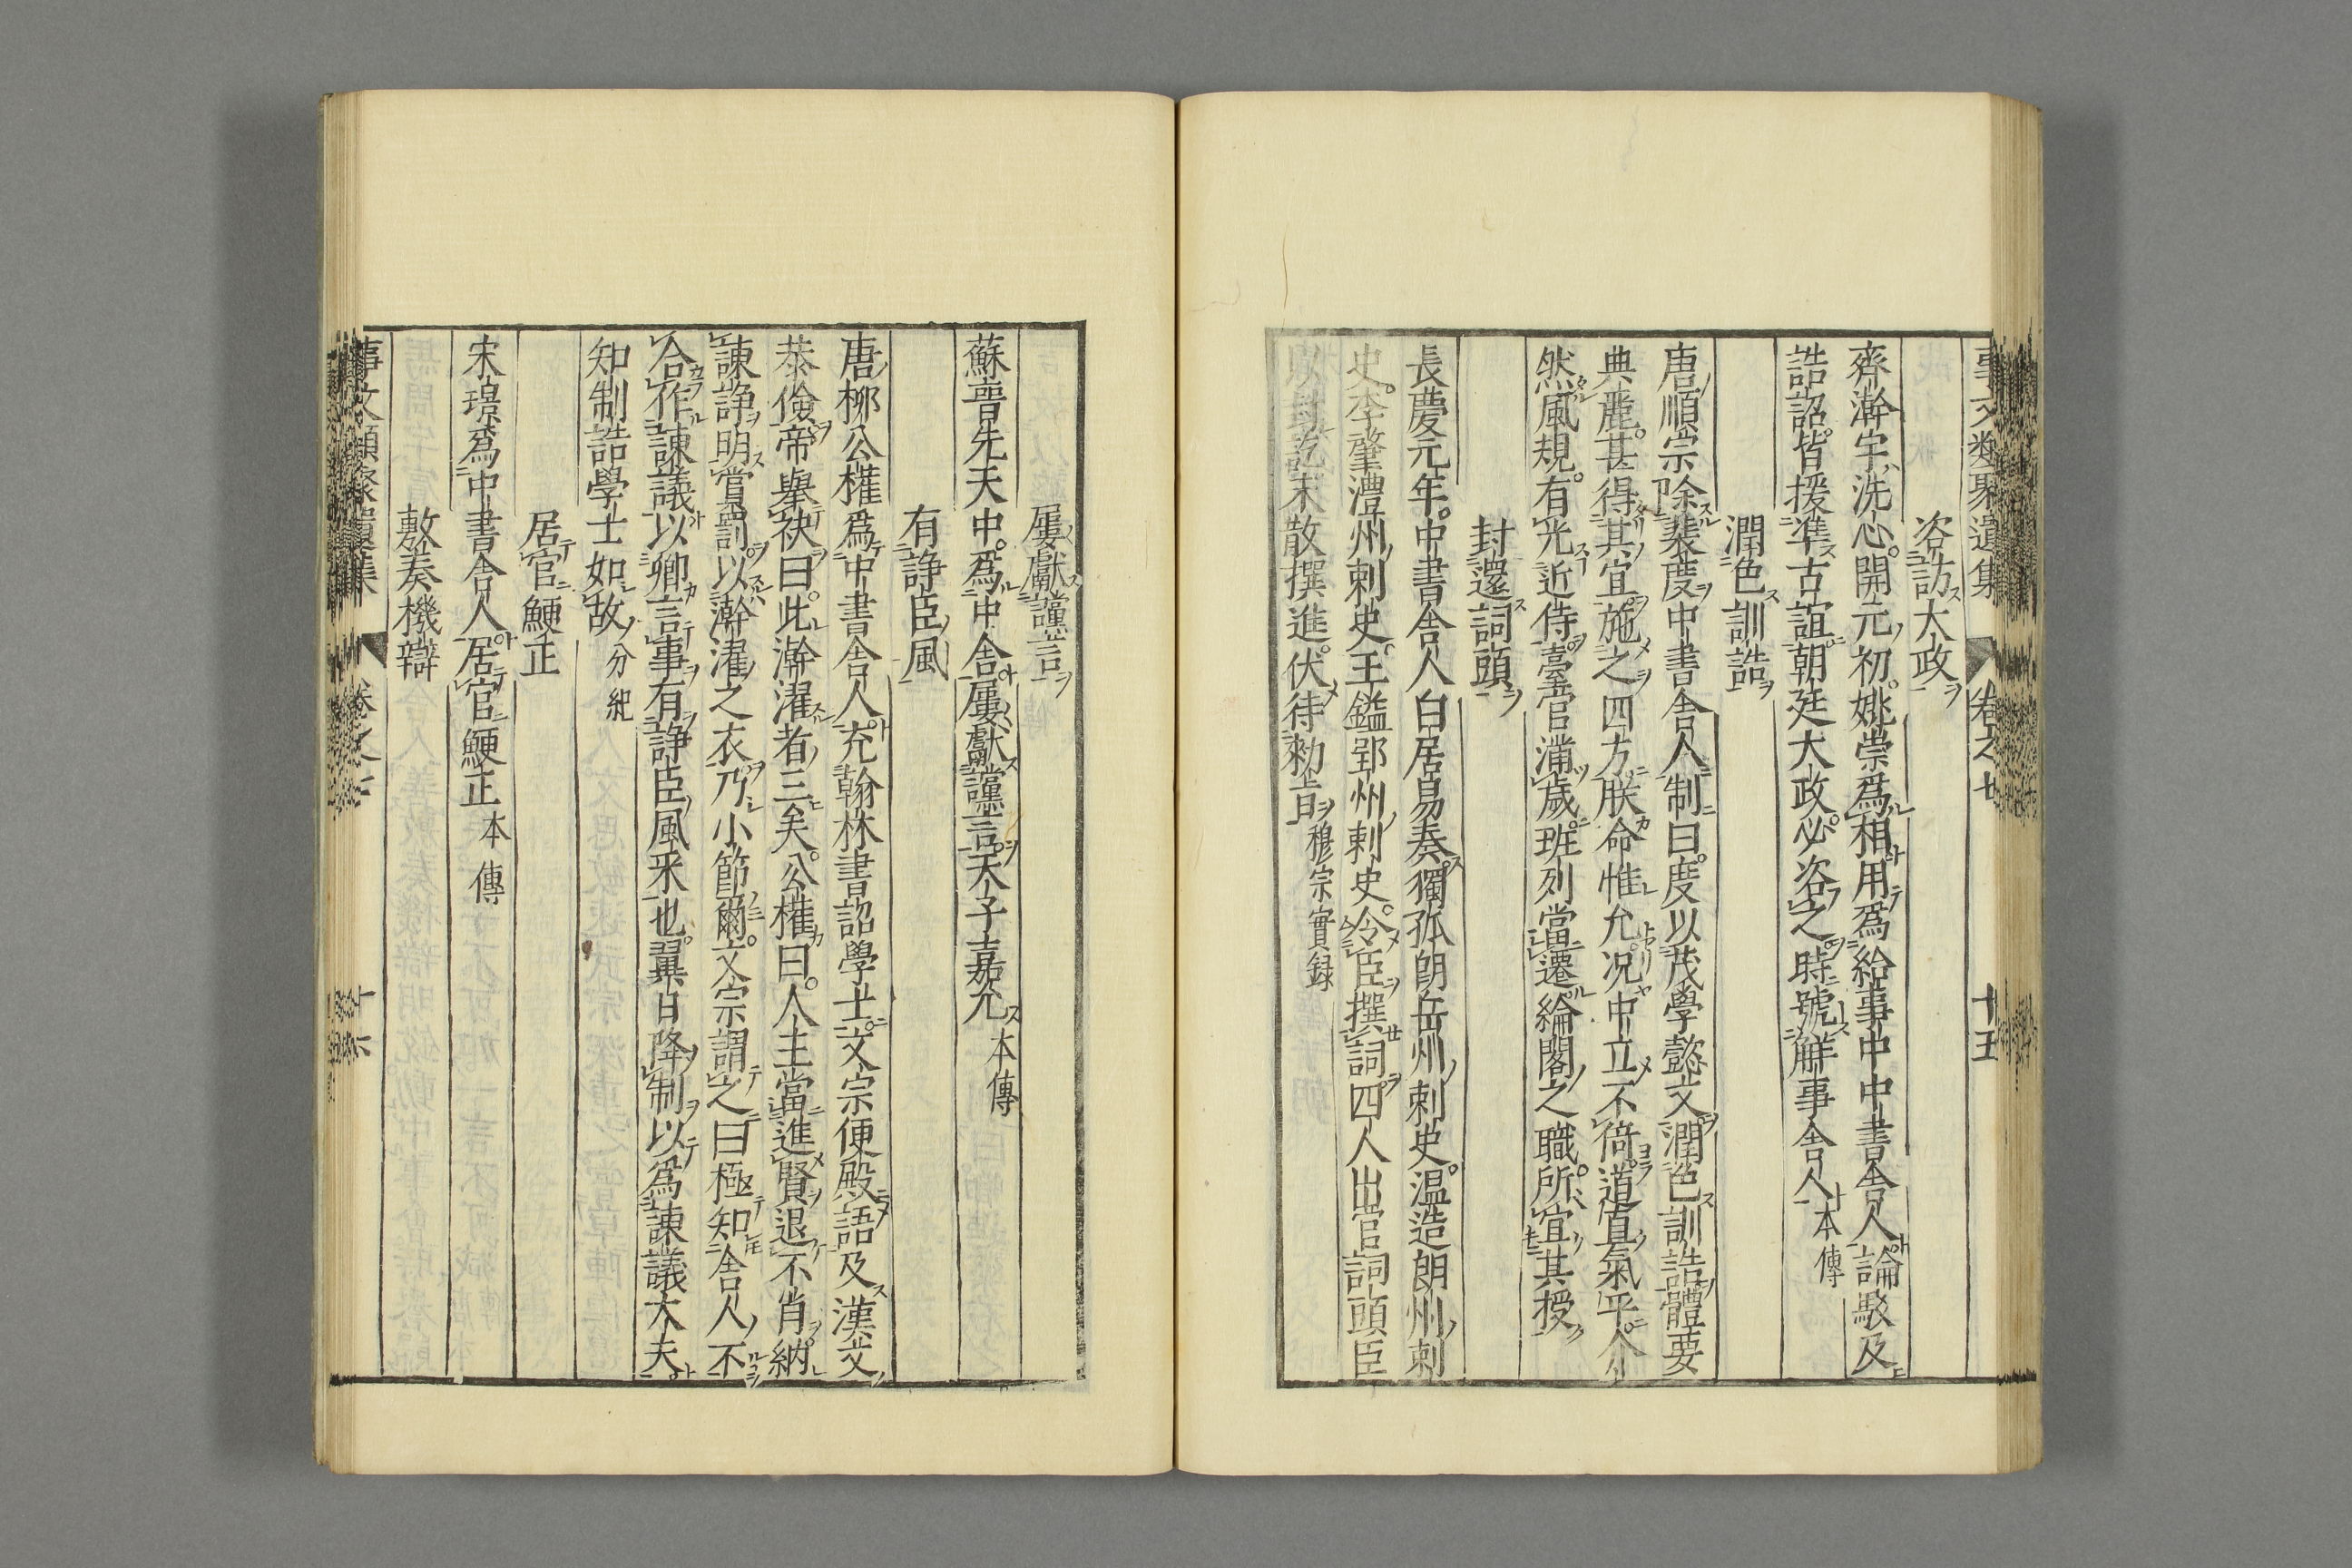 事文類聚遺集 卷之七 十五
咨訪大政
齊澣字洗心開元初姚崇爲相用爲給事中中書舍人論駁及
誥詔皆援準古誼朝廷大政必咨之時號解事舍人本傳
潤色訓誥
唐順宗除裴度中書舍人制曰度以茂學懿文潤色訓誥體要
典麗甚得其宜施之四方朕命惟允况中立不倚道直氣平介
然風規有光近侍臺官滿歲班列當遷綸閣之職所宜其授
封還詞頭
長慶元年中書舍人白居易奏獨孤朗岳州刺史温造朗州刺
史李肇澧州刺史王鎰郢州刺史令臣撰詞四人出官詞頭臣
以封訖未敢撰進伏待勑旨穆宗實録
屢獻讜言
蘇晋先天中爲中舍屢獻讜言天子嘉允本傳
有諍臣風
唐柳公權爲中書舍人充翰林書詔學士文宗便殿語及漢文
恭儉帝舉袂曰此澣濯者三矣公權曰人主當進賢退不肖納
諫諍明賞罰以澣濯之衣乃小節爾文宗謂之曰極知舍人不
合作諫議以卿言事有諍臣風采也翼日降制以爲諫議大夫
知制誥學士如故分紀
居官鯁正
宋璟爲中書舍人居官鯁正本傳
敷奏機辯
事文類聚遺集 卷之七 十六